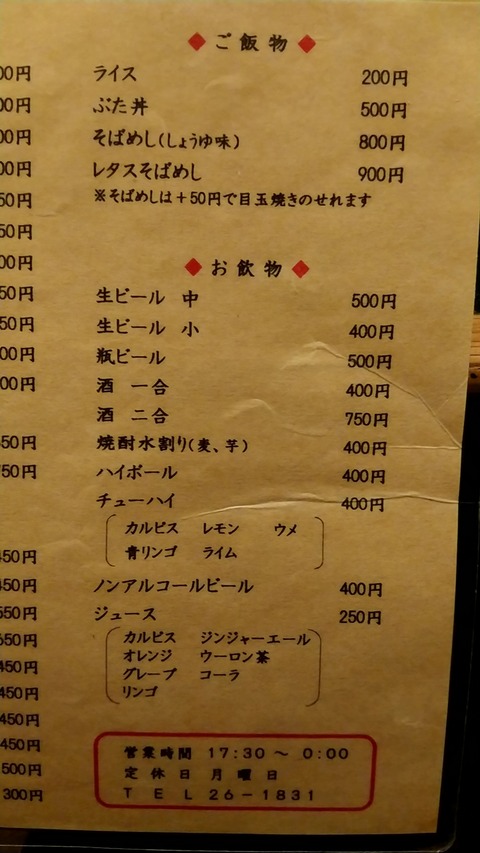 ◆ご飯物◆
ライス 200円
ぶた丼 500円
そばめし(しょうゆ味) 800円
レタスそばめし 900円
※そばめしは+50円で目玉焼きのせれます
◆お飲物◆
生ビール 中 500円
生ビール 小 400円
瓶ビール 500円
酒 一合 400円
酒 二合 750円
焼酎水割り(麦、芋) 400円
ハイボール 400円
チューハイ 400円
カルピス レモン ウメ
青リンゴ ライム
ノンアルコールビール 400円
ジュース 250円
カルピス ジンジャーエール
オレンジ ウーロン茶
グレープ コーラ
リンゴ
営業時間 17:30～0:00
定休日月曜日
TEL26-1831
00円
00円
00円
00円
50円
50円
00円
50円
50円
00円
00円
50円
50円
450円
450円
550円
650円
450円
450円
450円
450円
500円
300円